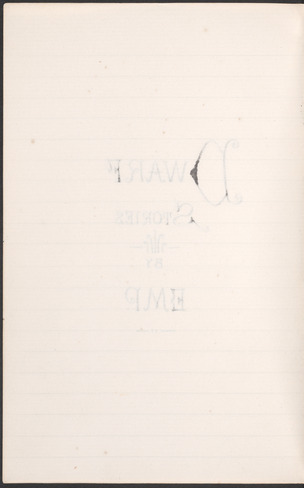 DWARF
STORIES
BY
EMP